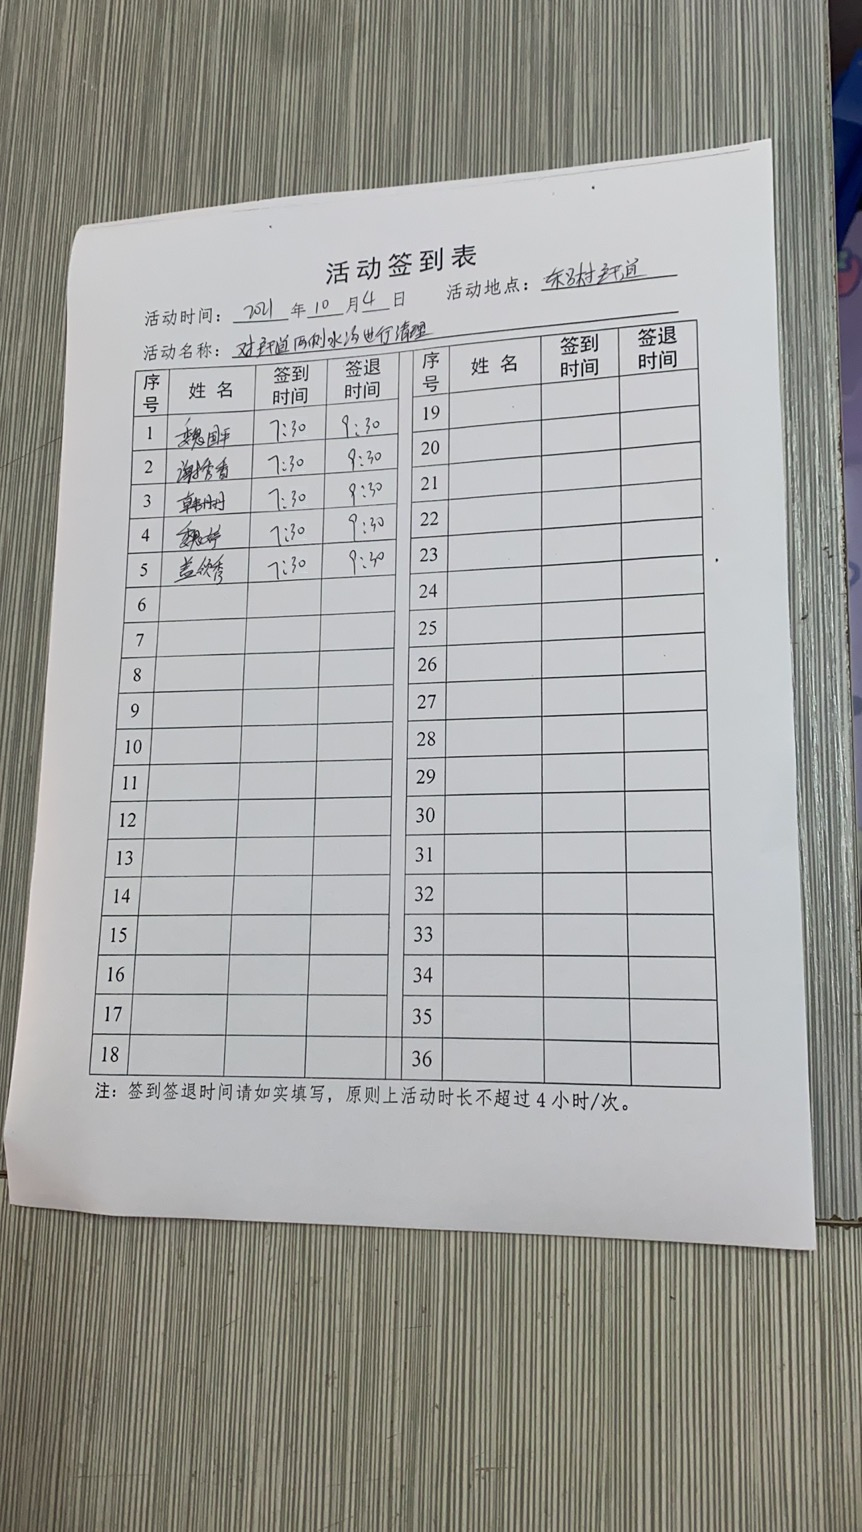 活动签到表
活动时间：2021年10月4日 活动地点：东吕村主干道
活动名称：对主干道两侧水沟进行清理
序号 姓名 签到时间 签退时间 序号 姓名 签到时间 签退时间
1 魏国平 7:30 9:30 19
2 谢秀香 7:30 9:30 20
3 韩丹丹 7:30 9:30 21
4 魏婷 7:30 9:30 22
5 盖欣秀 7:30 9:30 23
6 24
7 25
8 26
9 27
10 28
11 29
12 30
13 31
14 32
15 33
16 34
17 35
18 36
注：签到签退时间请如实填写，原则上活动时长不超过4小时/次。